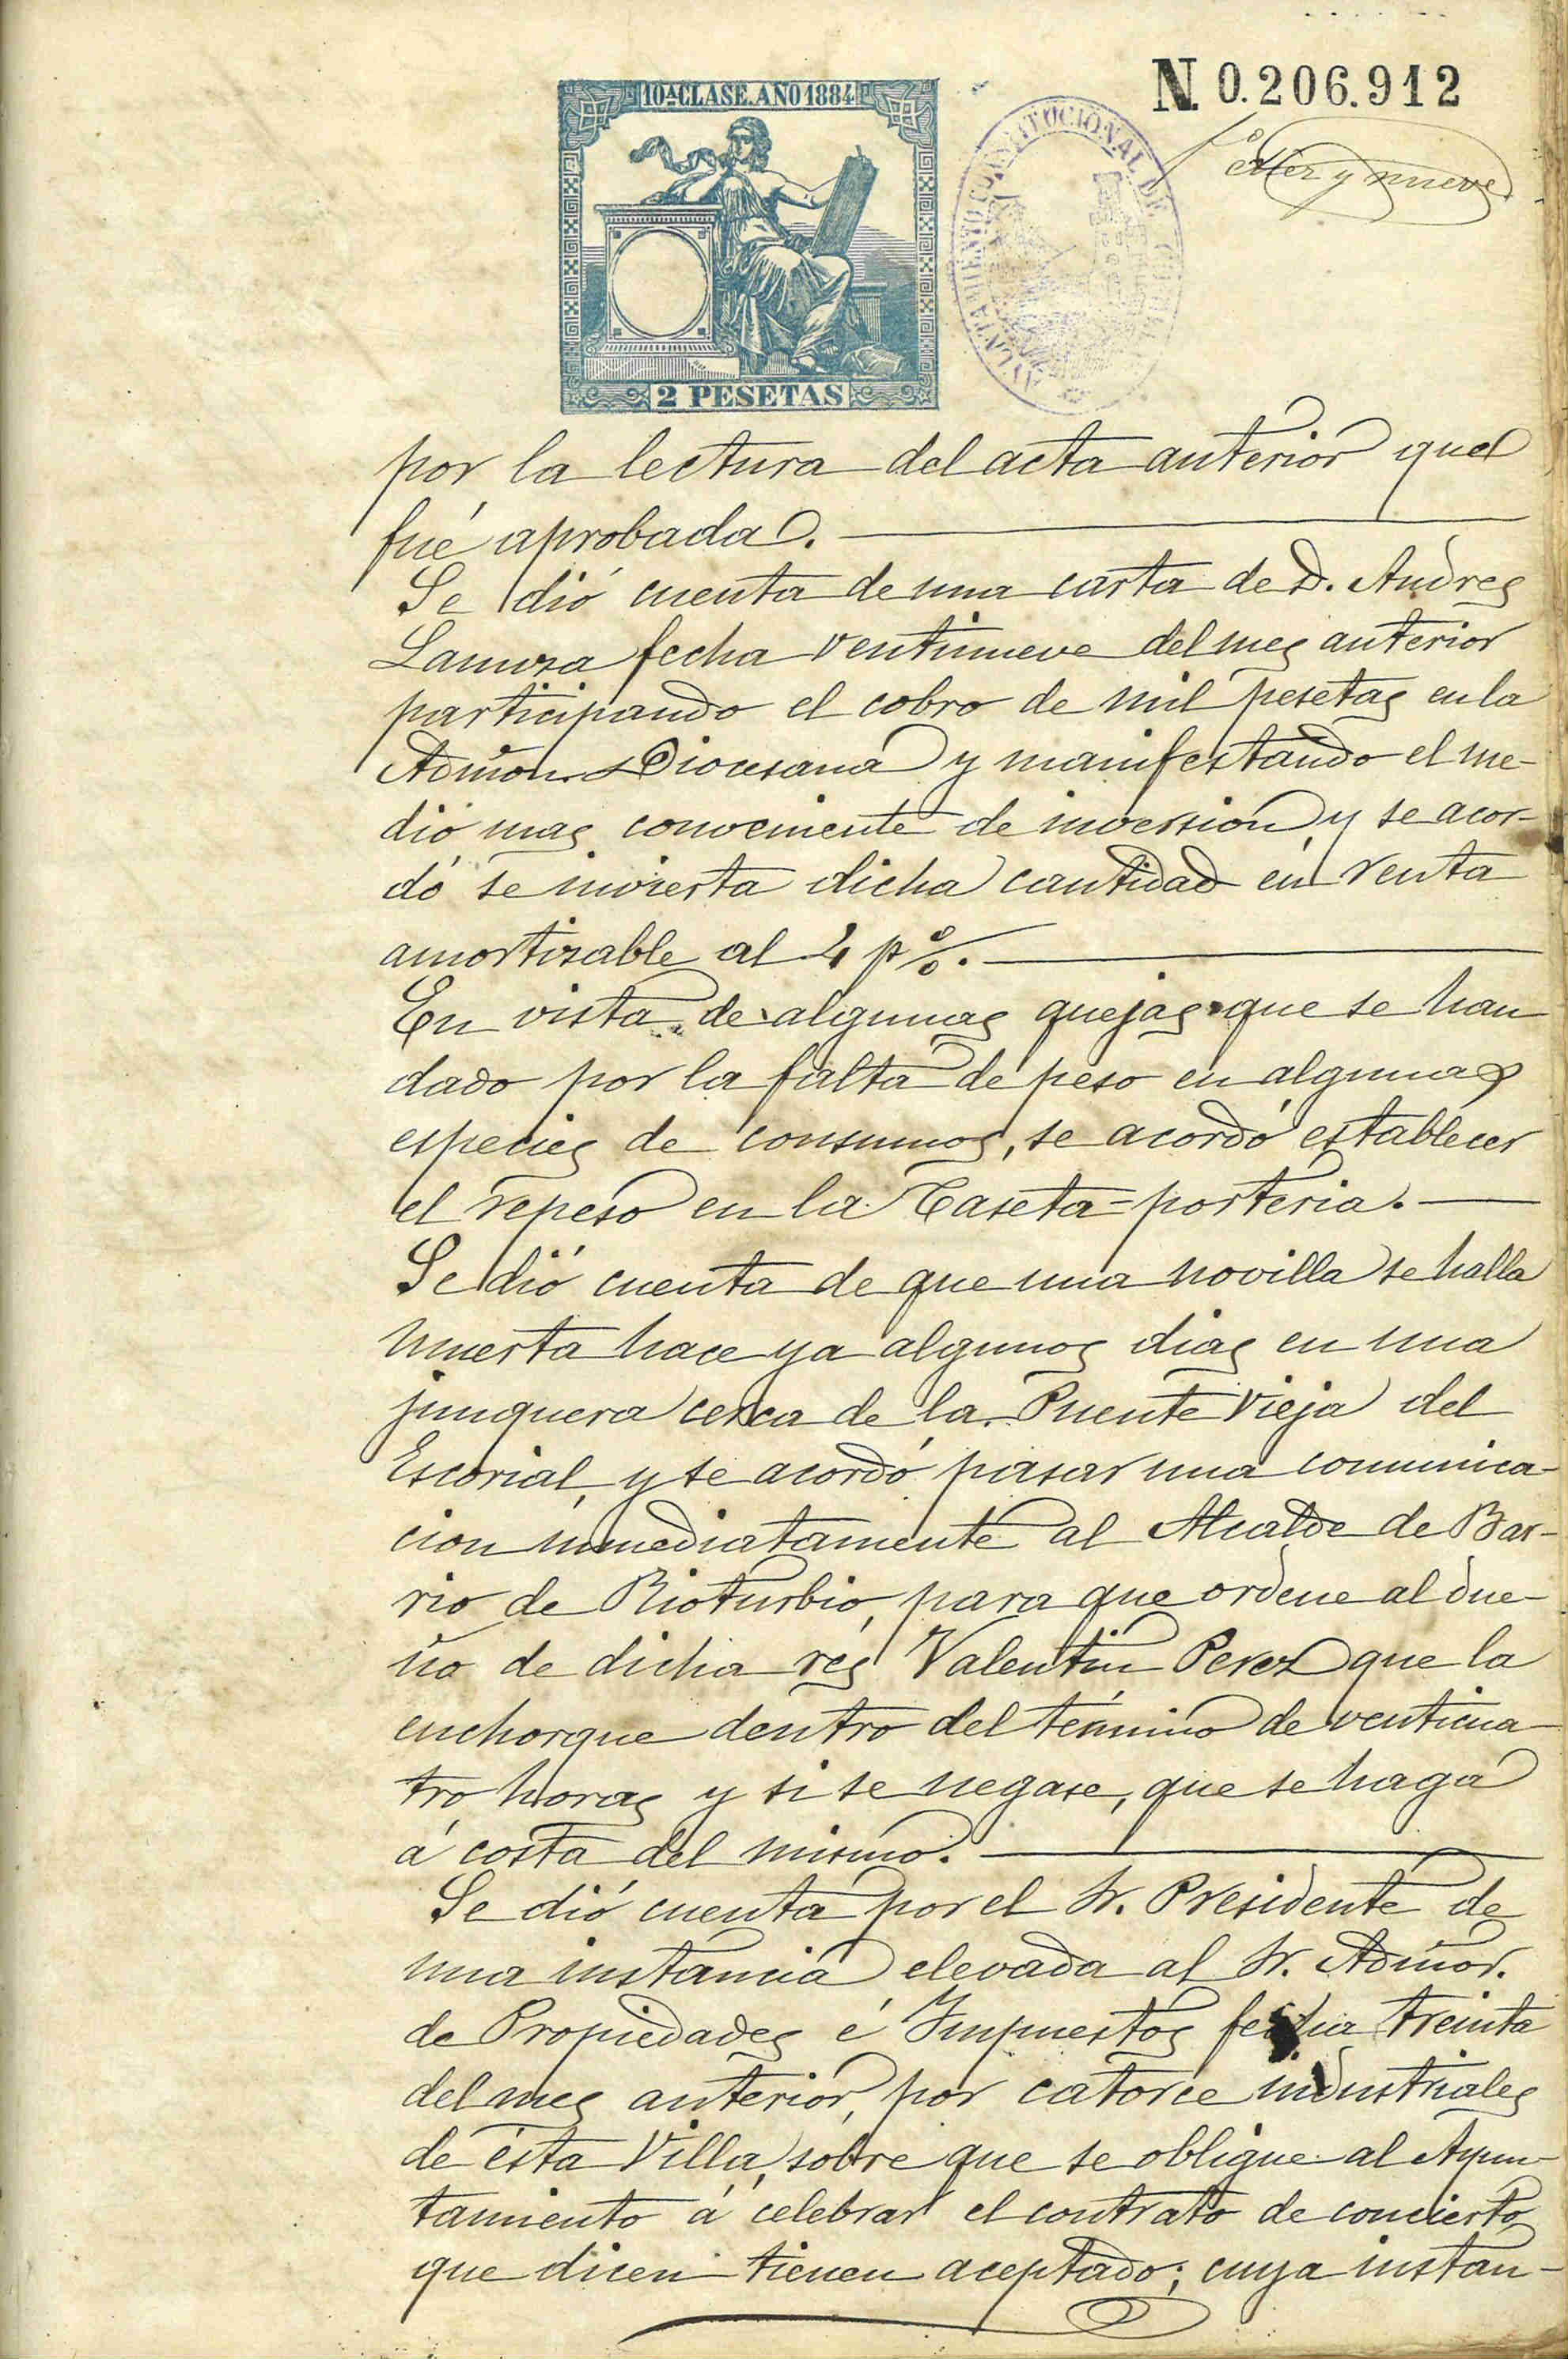 10ª CLASE. AÑO 1884
N. 0.206.912
AYUNTAMIENTO CONSTITUCIONAL DE
diez y nueve
2 PESETAS
por la lectura del acta anterior que
fué aprobada.
Se dió cuenta de una carta de D. Andres
Lanuza fecha ventinueve del mes anterior
participando el cobro de mil pesetas en la
Admon. Diocesana y manifestando el me-
dio mas conveniente de inversion, y se acor-
dó se invierta dicha cantidad en renta
amortizable al 4 p%.
En vista de algunas quejas que se han
dado por la falta de peso en algunas
especies de consumos, se acordó establecer
el repeso en la Caseta=porteria.
Se dió cuenta de que una novilla se halla
muerta hace ya algunos dias en una
junquera cerca de la Puente Vieja del
Escorial, y se acordó pasar una comunica-
cion inmediatamente al Alcalde de Bar-
rio de Rioturbio, para que ordene al due-
ño de dicha rés Valentin Perez que la
enchorque dentro del término de venticua-
tro horas y si se negase, que se haga
á costa del mismo.
Se dió cuenta por el Sr. Presidente de
una instancia elevada al Sr. Admor.
de Propiedades é Impuestos fecha treinta
del mes anterior, por catorce industriales
de ésta Villa, sobre que se obligue al Ayun-
tamiento á celebrar el contrato de concierto
que dicen tienen aceptado; cuya instan-